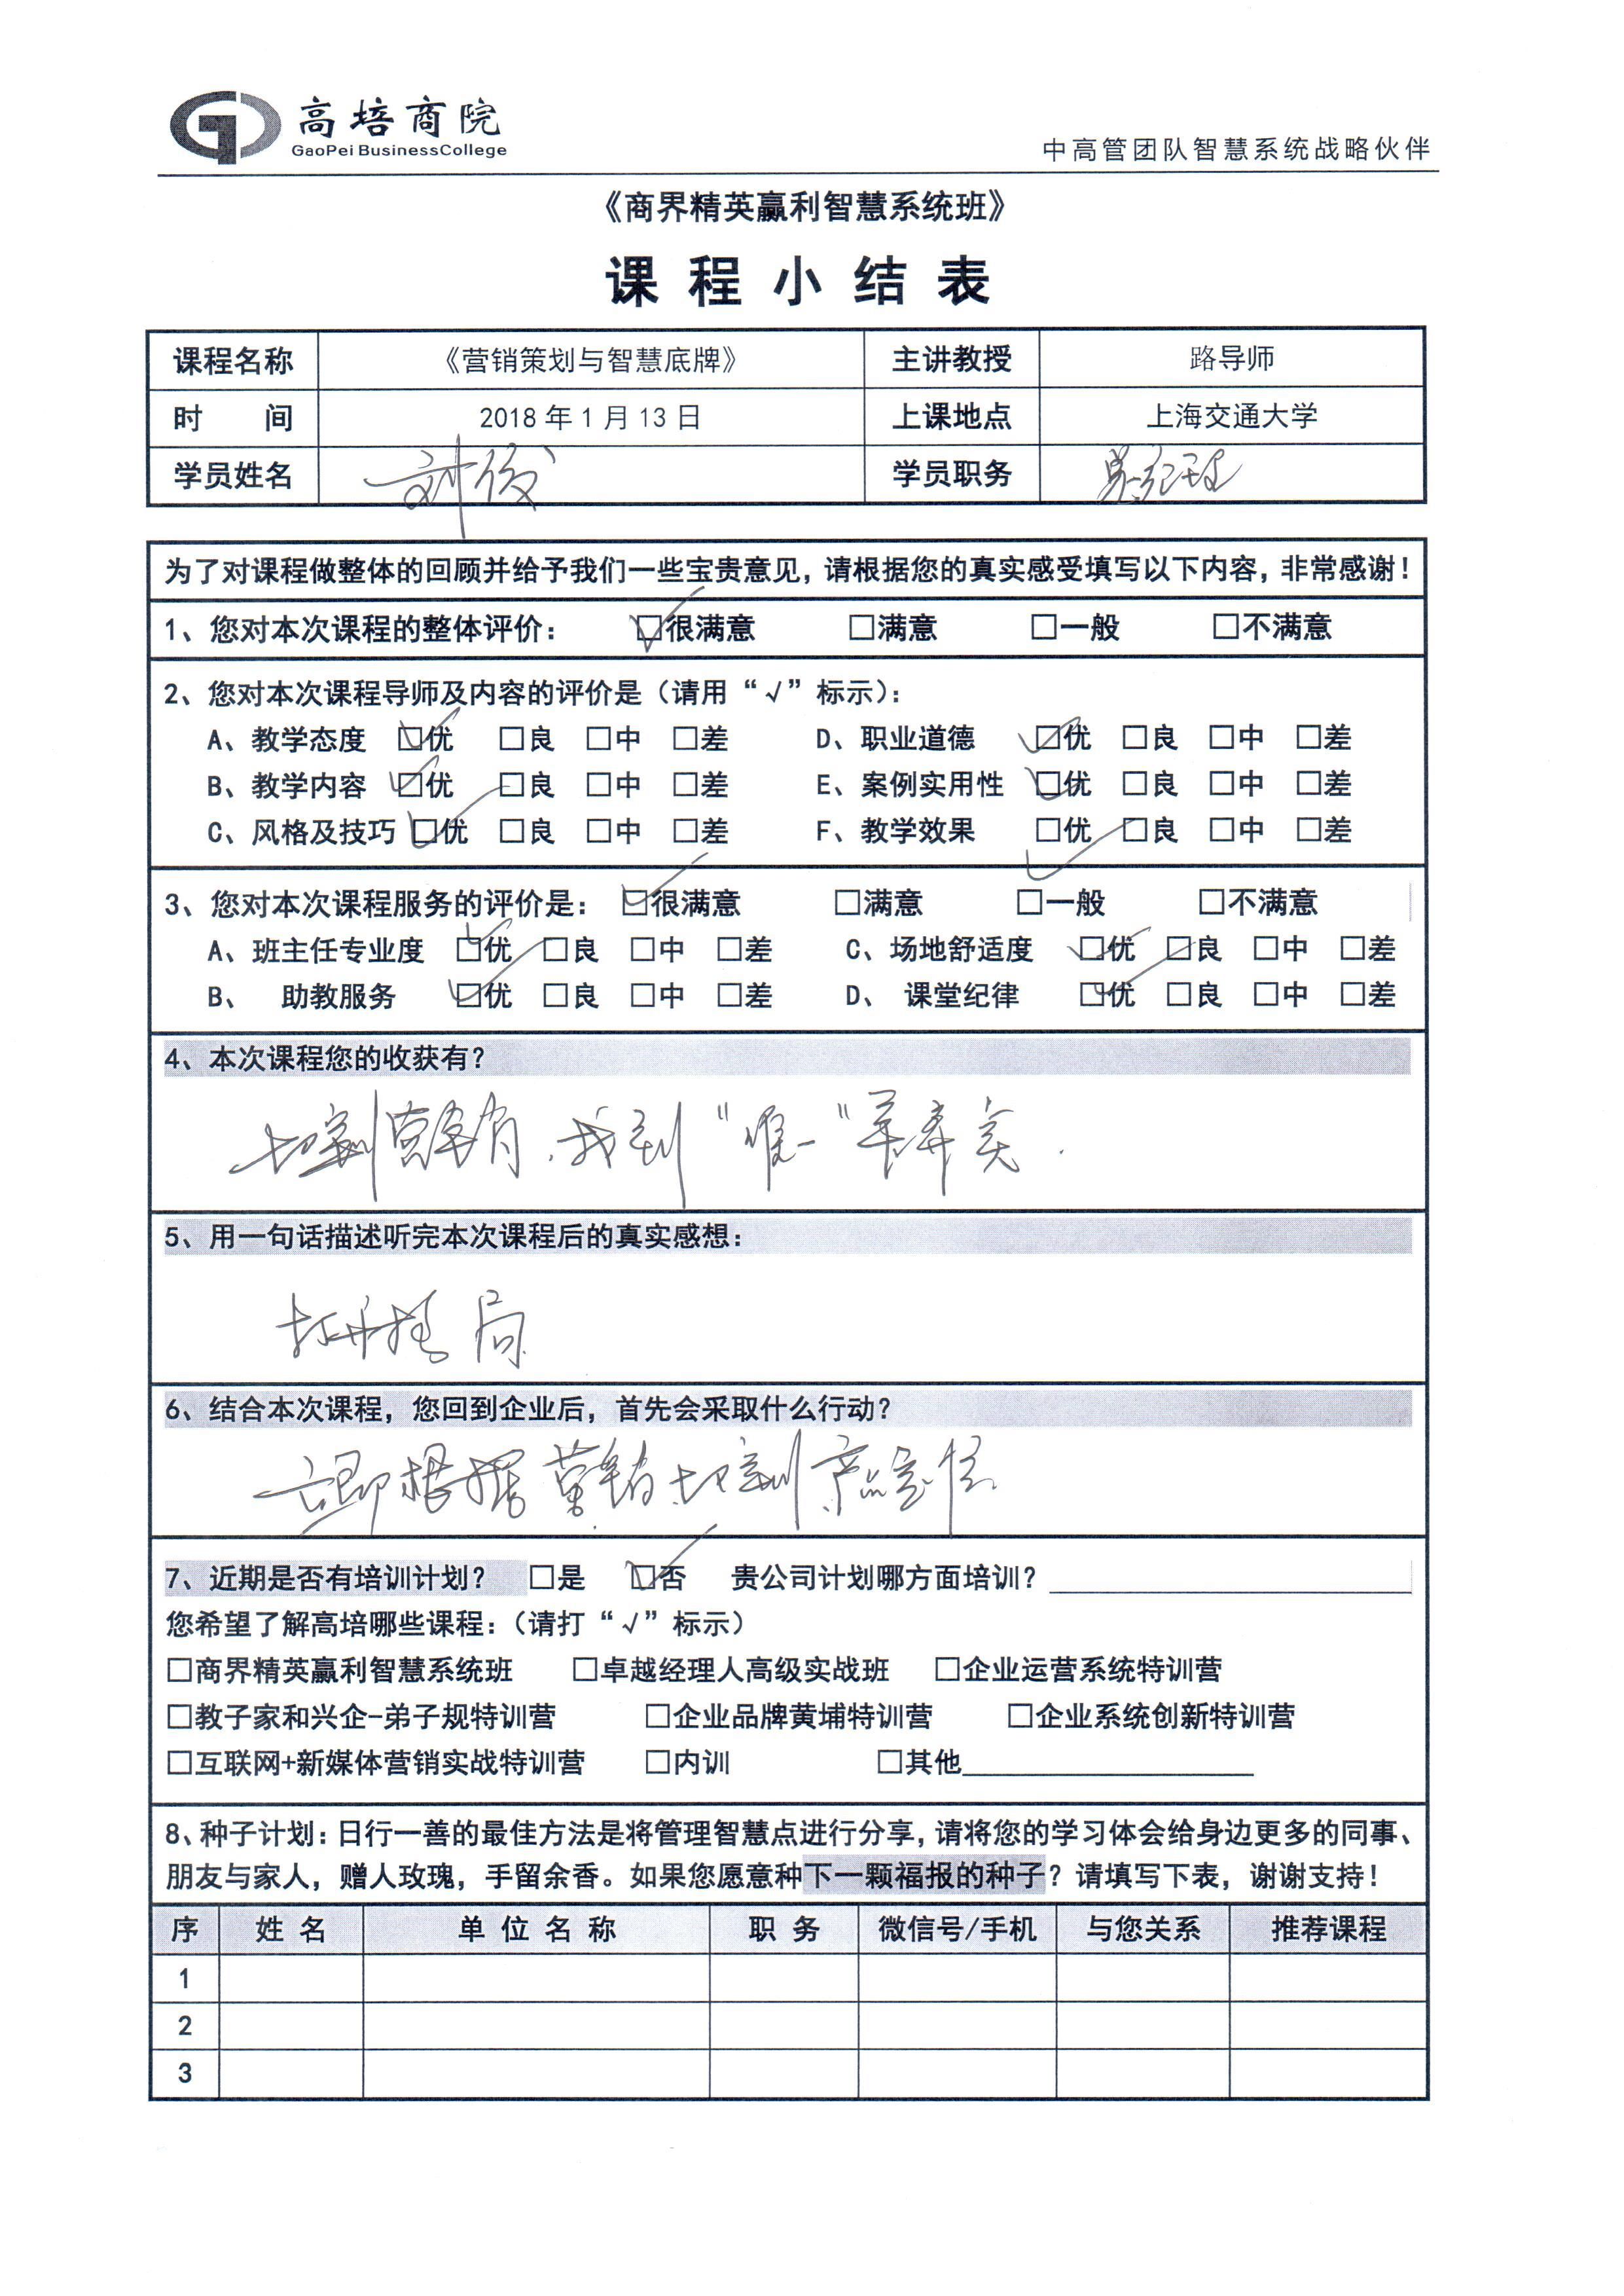 高培商院
GaoPei BusinessCollege
中高管团队智慧系统战略伙伴
《商界精英赢利智慧系统班》
课程小结表
课程名称 《营销策划与智慧底牌》 主讲教授 路导师
时 间 2018年1月13日 上课地点 上海交通大学
学员姓名 刘俊 学员职务 总经理
为了对课程做整体的回顾并给予我们一些宝贵意见，请根据您的真实感受填写以下内容，非常感谢！
1、您对本次课程的整体评价： ☑很满意 □满意 □一般 □不满意
2、您对本次课程导师及内容的评价是（请用“√”标示）：
A、教学态度 ☑优 □良 □中 □差 D、职业道德 ☑优 □良 □中 □差
B、教学内容 ☑优 □良 □中 □差 E、案例实用性 ☑优 □良 □中 □差
C、风格及技巧 ☑优 □良 □中 □差 F、教学效果 ☑优 □良 □中 □差
3、您对本次课程服务的评价是： ☑很满意 □满意 □一般 □不满意
A、班主任专业度 ☑优 □良 □中 □差 C、场地舒适度 ☑优 □良 □中 □差
B、 助教服务 ☑优 □良 □中 □差 D、 课堂纪律 ☑优 □良 □中 □差
4、本次课程您的收获有？
找到“唯一”
5、用一句话描述听完本次课程后的真实感想：
打开格局
6、结合本次课程，您回到企业后，首先会采取什么行动？
立即根据营销策划产品定位
7、近期是否有培训计划？ □是 ☑否 贵公司计划哪方面培训？
您希望了解高培哪些课程：（请打“√”标示）
□商界精英赢利智慧系统班 □卓越经理人高级实战班 □企业运营系统特训营
□教子家和兴企-弟子规特训营 □企业品牌黄埔特训营 □企业系统创新特训营
□互联网+新媒体营销实战特训营 □内训 □其他
8、种子计划：日行一善的最佳方法是将管理智慧点进行分享，请将您的学习体会给身边更多的同事、
朋友与家人，赠人玫瑰，手留余香。如果您愿意种下一颗福报的种子？请填写下表，谢谢支持！
序 姓名 单位名称 职务 微信号/手机 与您关系 推荐课程
1
2
3